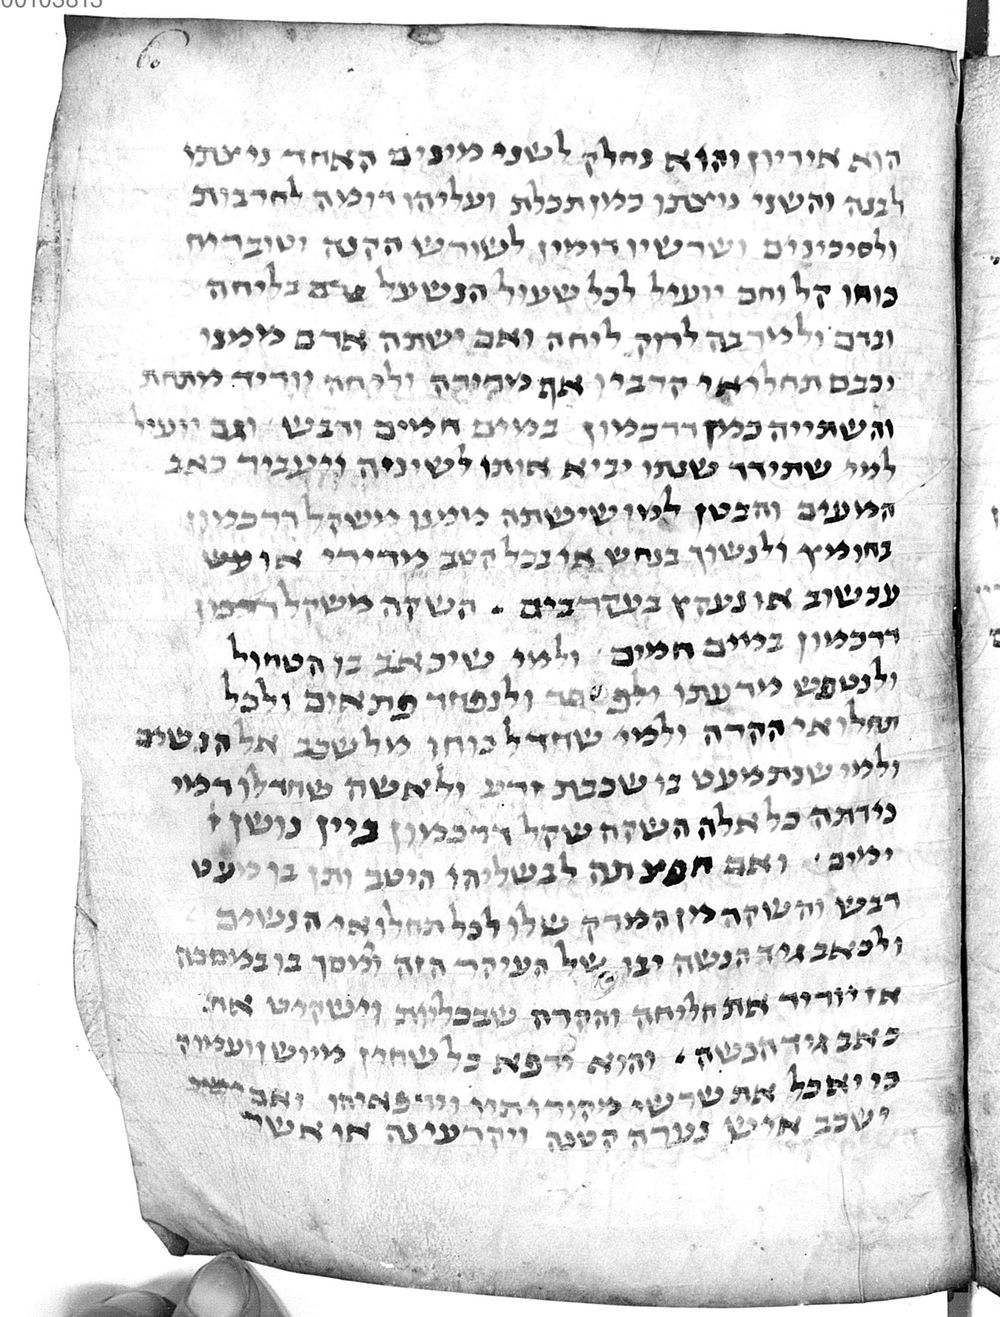 00103813
60
הוא אידיון והוא נחלק לשני מינים האחד ניצתו
לבנה והשני ניצתו כמו תכלת ועליהו דומה לחרבות
ולסיכינים ושרשיו דומין לשורש הקנה וטוב ריח
כוחו קל וחם יועיל לכל שעול הנשעל בליחה
ודם ולמרבה לרוק ליחה ואם ישתה אדם ממנו
וכבס תחלואי קרביו אף מהמרה וליחה יוריד מתחת
והשתייה כמו דרכמון במים חמים ודבש וגם יועיל
למי שתידד שנתו יביא אותו לשינה ויעביר כאב
המעים והבטן למי שישתה ממנו משקל דרכמון
בחומץ ולנשוך בנחש או בכל קטב מרירי או עש
עכשוב או נעקץ בעקרבים השקה משקל
דרכמון במים חמים ולמי שיכאב בו הטחול
ולנטפש מדעתו ולנפחד פתאום ולכל
תחלואי הקרה ולמי שחדל כוחו מלשכב אל הנשים
ולמי שנתמעט בו שכבת זרע ולאשה שחדלו דמי
נידתה כל אלה השקה שקל דרכמון ביין נושן
ימים ואם חפצתה לבשליהו היטב ותן בו מעט
דבש והשקה מן המרק שלו לכל תחלואי הנשים
ולכאב גיד הנשה יבו של העיקר הזה ומסך בו במסכה
אז יוריד את הליחה והקרה שבכליות וישקיט את
כאב גיד הנשה והוא ירפא כל שחין מיושן ועמוק
כי יאכל את שרשי מקורותיו וירפאיהו ואם
ישכב איש נערה קטנה ויקרעינה או אשר